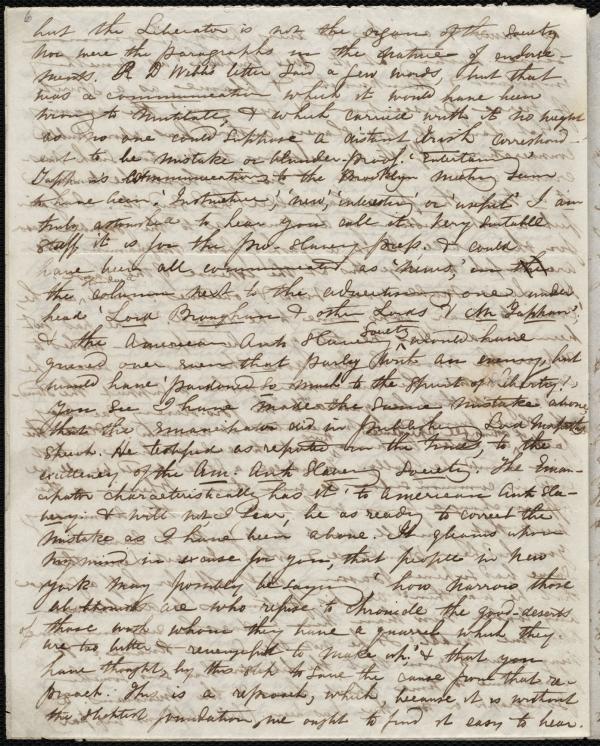 6
but the Liberator is not the organ of the Society
nor were the paragraphs in the nature of endorse-
ments. R D Webb's letter said a few words, but that
was a communication which it would have been
wrong to mutilate, & which carries with it no weight
as no one could suppose a distant Irish correspond-
ent to be mistake or blunder-proof. Entertaining
Tappan's communications to the Brooklyn meeting seem
to have been. 'Instructive,' 'new,' 'interesting' or 'useful' I am
truly astonished to hear you call it. Very suitable
stuff it is for the pro-slavery press. & could
have been all communicated as 'news,' in the
the column next to the advertising one under
head 'Lord Brougham & other Lords & Mr Tappan';
& the American Anti Slavery Society would have
over even that
would have 'pardoned so much to the spirit of liberty'!
You see I have made the same mistake above
that the Emancipator did in publishing Lord Morpeth's
speech. He testified as reported in the Times, to the
excellency of the Am. Anti Slavery Society. The Eman-
cipator characteristically has it 'to American Anti Sla-
very' & will not I fear, be as ready to correct the
mistake as I have been above. It gleams upon
my mind in excuse for you, that people in New
York may possibly be saying 'how narrow those
are who refuse to chronicle the good deserts
of those with whom they have a quarrel which they
are too bitter & revengeful to make up,' & that you
have thought by this step to save the cause from that re-
proach. This is a reproach, which, because it is without
the slightest foundation, we ought to find it easy to bear.